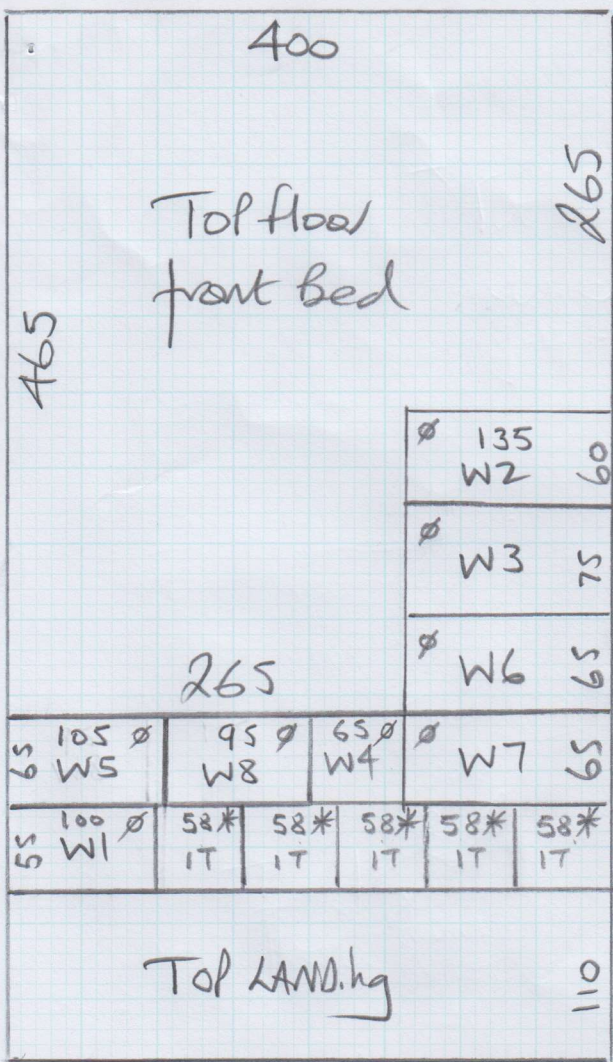 400
265
Top floor
front Bed
465
Ø 135
W2 60
Ø W3 75
Ø W6 65
265
65 105 Ø
W5
95 Ø
W8
65 Ø
W4
Ø W7 65
55 100 Ø
W1
58* 58* 58* 58* 58*
1T 1T 1T 1T 1T
Top LANDing
110